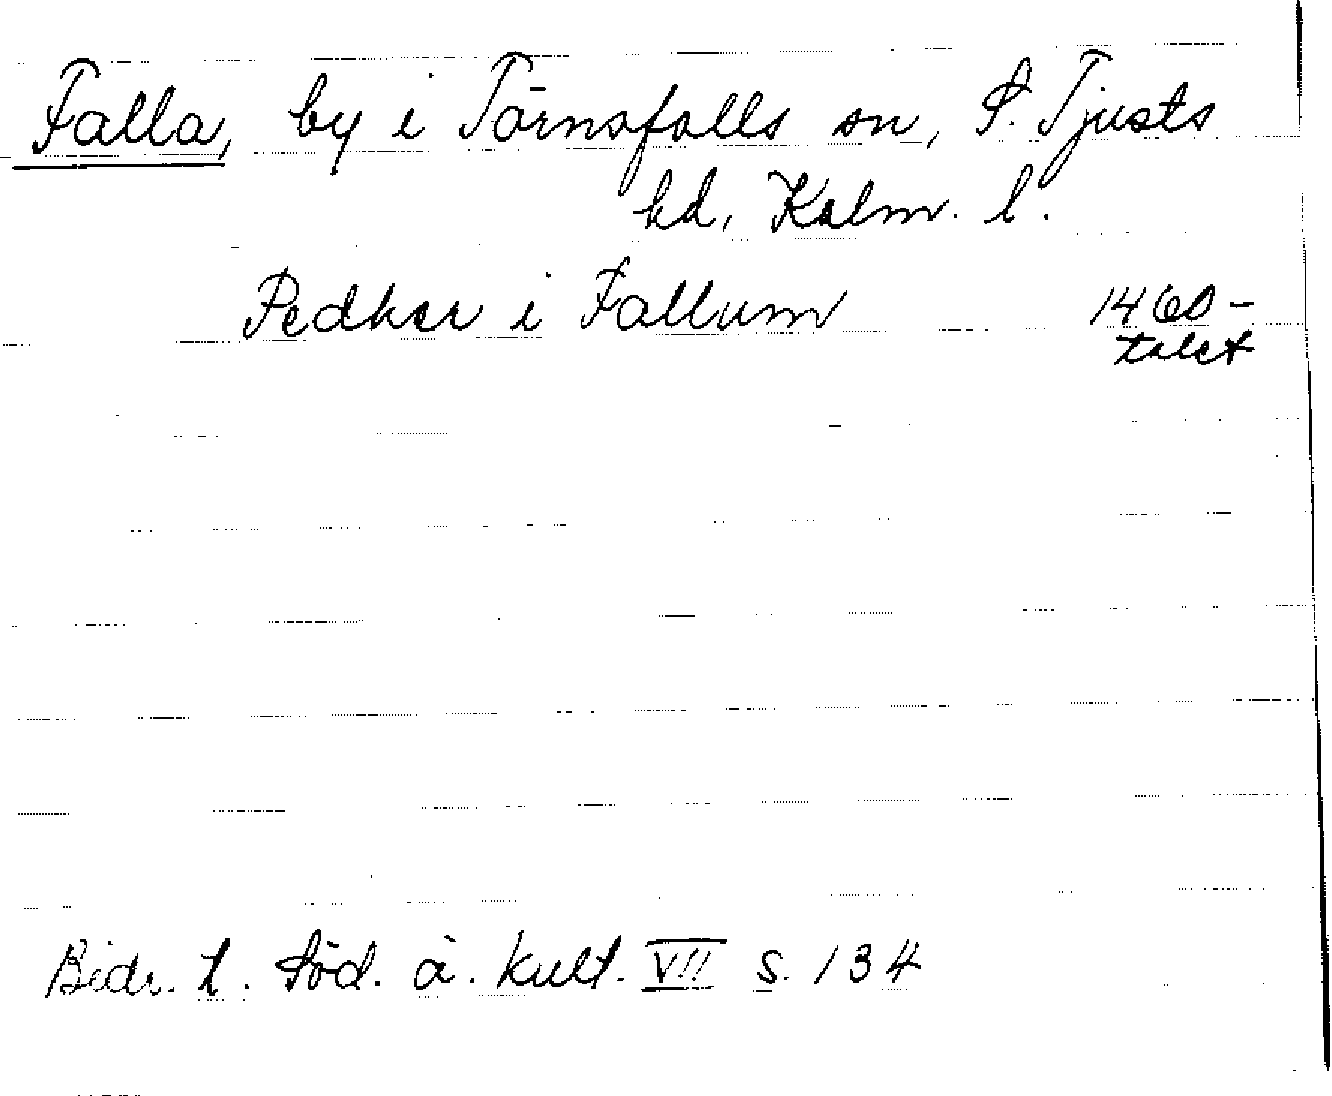 Falla, by i Törnsfalls sn, S. Tjusts
hd, Kalm. l.
Pedher i Fallum 1460-
talet
Bidr. t. Söd. ä. kult. VII s. 134